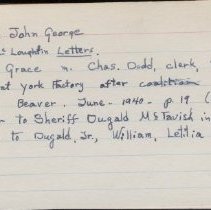 John George
McLoughlin Letters.
Grace m. Chas. Dodd, clerk,
at York Factory after coalition
Beaver. June - 1940 - p. 19 (
to Sheriff Dugald McTavish in
to Dugald, Jr., William, Letitia